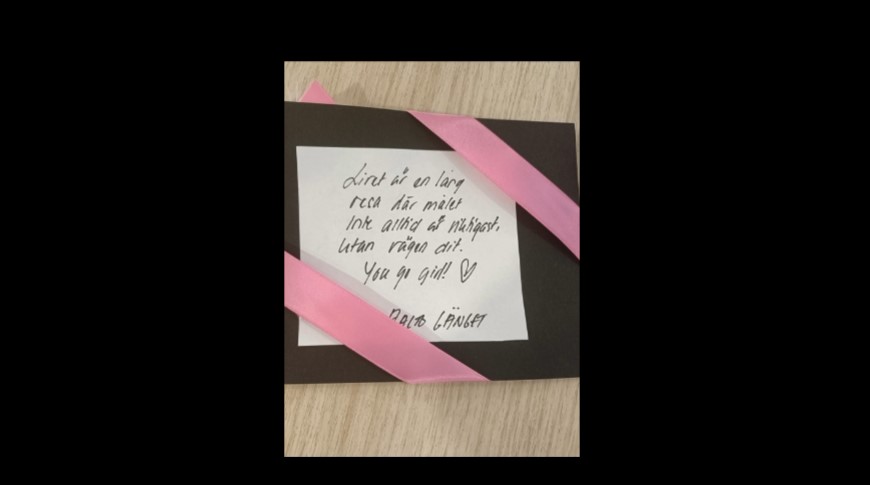 Livet är en lång
resa där målet
inte alltid är viktigast,
utan vägen dit.
You go girl! ♡
GÄNGET